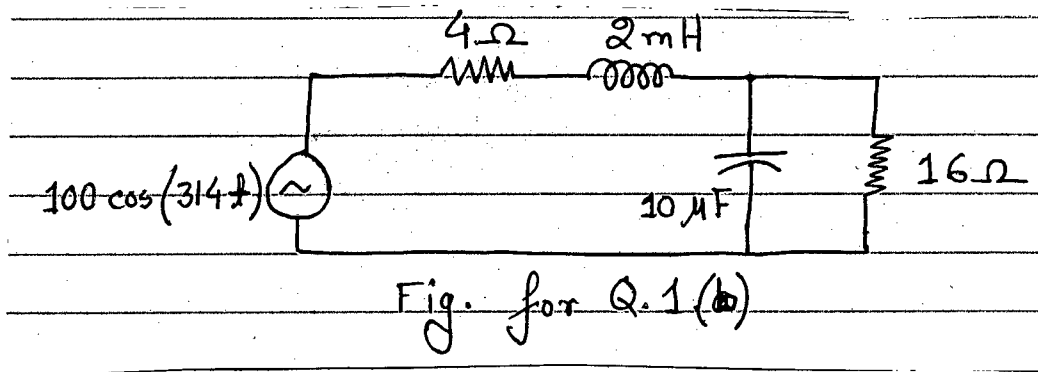 4Ω 2mH
100 cos(314t) 10 μF 16Ω
Fig. for Q.1(b)